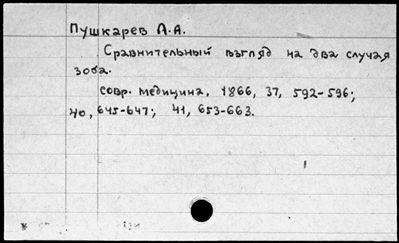 Пушкарев А.А.
Сравнительный взгляд на два случая
зоба.
Совр. медицина, 1866, 37, 592-596;
40, 645-647; 41, 653-663.